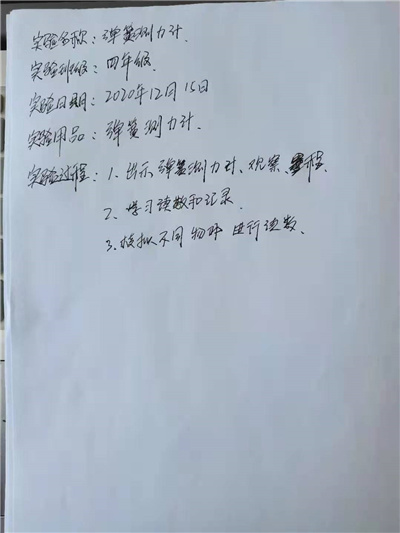 实验名称：弹簧测力计.
实验班级：四年级.
实验日期：2020年12月15日
实验用品：弹簧测力计.
实验过程：1、出示弹簧测力计、观察、量程.
2、学习读数和记录.
3、模拟不同物体进行读数.